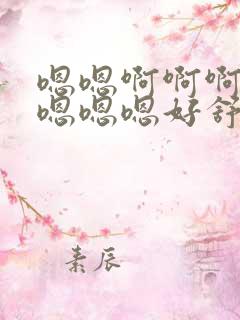 嗯嗯啊啊啊
嗯嗯嗯好舒
素辰